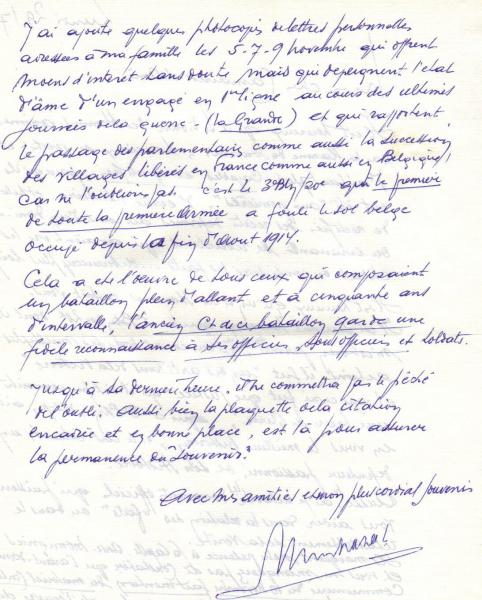 J'ai ajouté quelques photocopies de lettres personnelles
adressées à ma famille les 5-7-9 novembre qui offrent
moins d'intérêt sans doute mais qui dépeignent l'état
d'âme d'un engagé en 1ère ligne au cours des ultimes
journées de la guerre - (la Grande) et qui rapportent
le passage des parlementaires comme aussi la succession
des villages libérés en France comme aussi en Belgique,
car ne l'oublions pas c'est le 3e Btn/ qui le premier
de toute la première armée a foulé le sol belge
occupé depuis la fin d'Aout 1914.
Cela a été l'oeuvre de tous ceux qui composaient
un bataillon plein d'allant, et à cinquante ans
d'intervalle, l'ancien Ct de ce bataillon garde une
fidèle reconnaissance à ses officiers, sous officiers et soldats.
Jusqu'à sa dernière heure, il ne commettra pas le péché
de l'oubli. Aussi bien la plaquette de la citation
encadrée et en bonne place, est là pour assurer
la permanence du Souvenir.
Avec mes amitiés et mon plus cordial souvenir